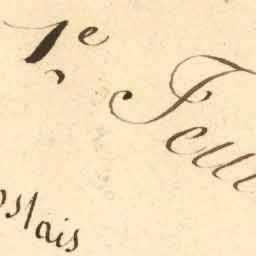 1.e Feui
ostais